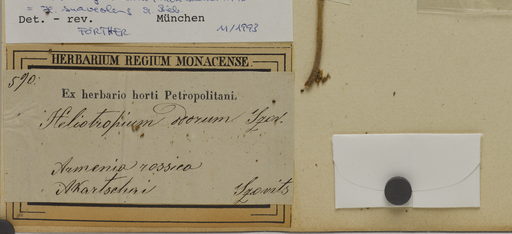 = H. suaveolens M. Bieb
Det. - rev. München
FÖRTHER 11/1993
HERBARIUM REGIUM MONACENSE.
590.
Ex herbario horti Petropolitani.
Heliotropium odorum Szov.
Armenia rossica
Akartschai Szovits